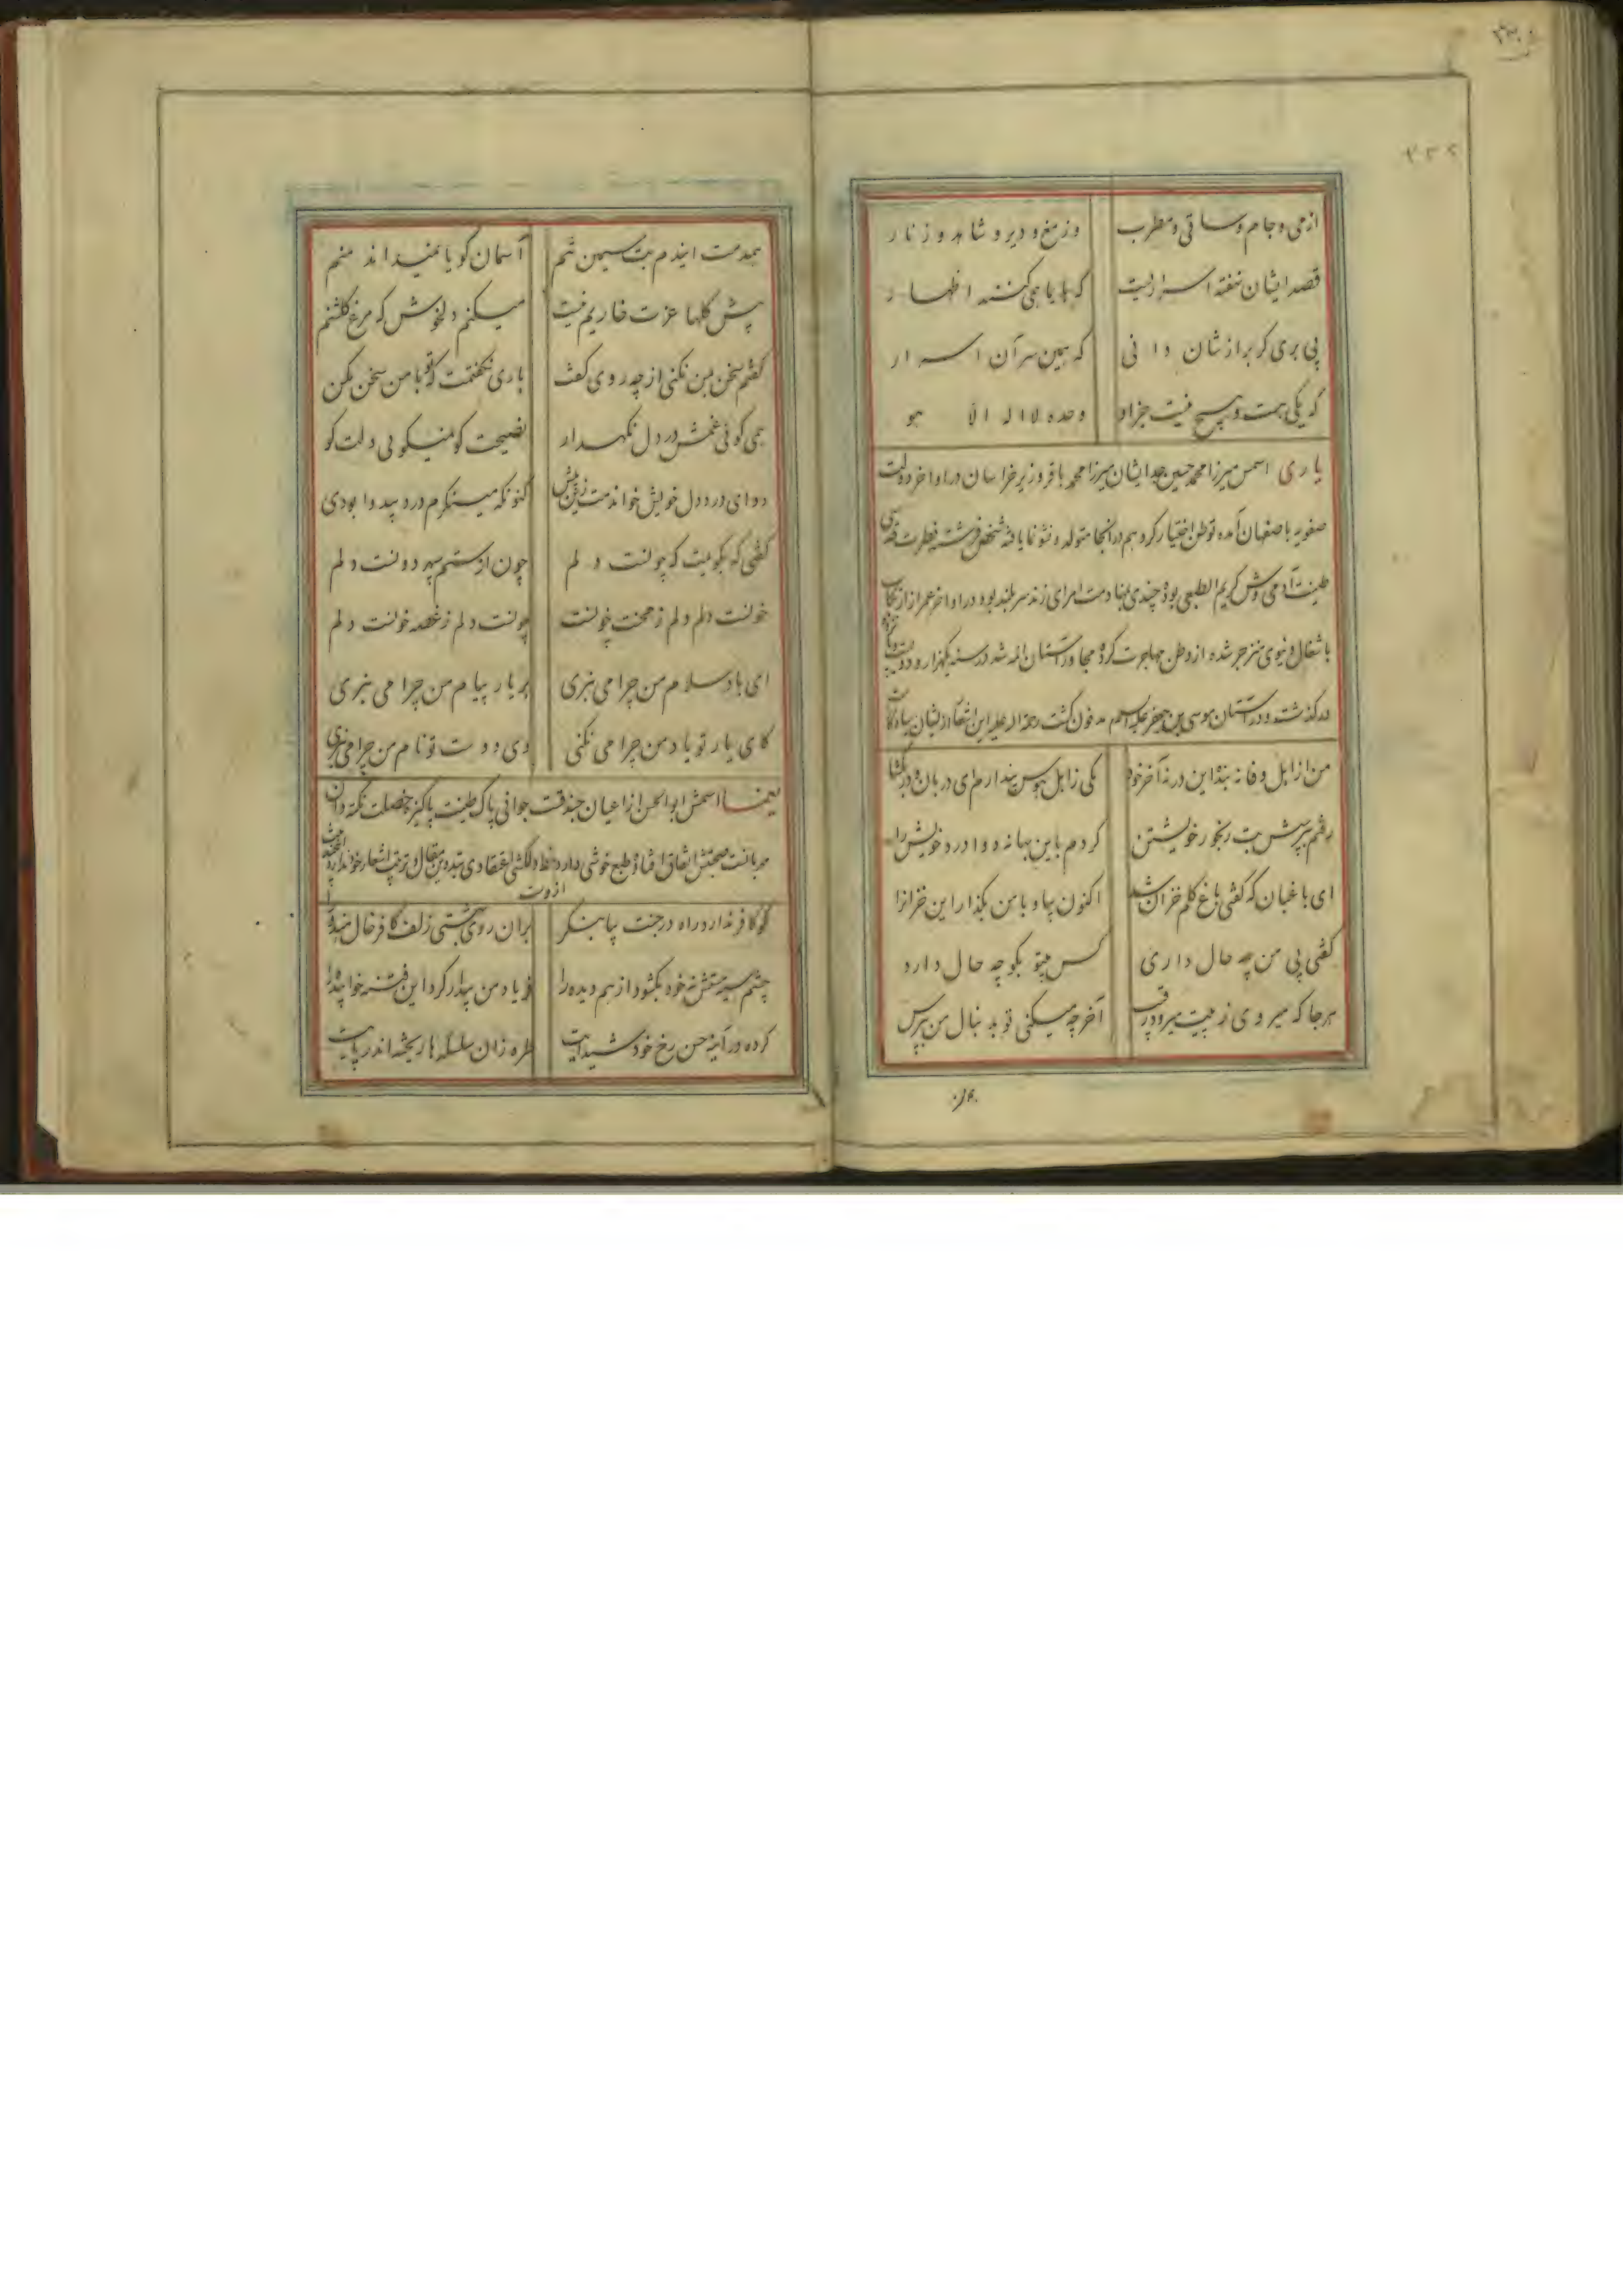 ۳۳۰
۲۳۲
از می و جام و ساقی و مطرب وز مغ و دیر و شاهد و زنار
قصد ایشان نهفته اسراریست که بایما همی کنند اظهار
پی بری گر برازشان دانی که همین سر آن اسرار
که یکی هست و هیچ نیست جز او وحده لا اله الا هو
یاری اسمش میرزا محمد حسین جد ایشان میرزا محمد باقر وزیر خراسان در اواخر دولت
صفویه باصفهان آمده توطن اختیار کرد و هم در آنجا متولد و نشو نما یافته شخص فرشته فطرت قدسی
طینت آدمی وش کریم الطبعی بود چندی بمنادمت امرای زند سربلند بوده در اواخر عمر از ارتکاب
باشغال دنیوی منزجر شده از وطن مهاجرت کرده مجاور آستان ائمه شد در سنه یکهزار و دویست و
درگذشت و در آستان موسی بن جعفر علیه السلام مدفون گشت رحمة الله علیه این اشعار از ایشان بیادگار است
من از اهل وفا نه بنده این در نه آخر خود یکی ز اهل هوس پندارم ای دربان و در بگشا
رفتم بپرسش بت رنجور خویشتن کردم باین بهانه دوا درد خویش را
ای باغبان که گفتی باغ گلم خزان شد اکنون بیا و با من بگذار این خزانرا
گفتی بی من چه حال داری کس بیتو بگو چه حال دارد
هرجا که میروی ز پیت میرود رقیب آخر چه میکنی تو بدنبال من بپرس
همدمت ایندم بت سیمین تنم آسمان گویا نمیداند منم
پیش گلها عزت خاریم نیست میکنم دلخوش که مرغ گلشنم
گفتم سخن بمن نکنی از چه روی گفت باری نگفتمت که تو با من سخن مکن
همی گوئی غمش در دل نگهدار نصیحت گو نمیگوئی دلت کو
دوای درد دل خویش خواندمت زین پیش کنونکه مینگرم درد بیدوا بودی
گفتی که بگویمت که چونست دلم چون از ستم سپهر دونست دلم
خونست دلم دلم ز محنت خونست چونست دلم ز غصه خونست دلم
ای باد سلام من چرا می نبری بر یار پیام من چرا می نبری
کای یار تو یاد من چرا می نکنی وی دوست تو نام من چرا می نبری
یغما اسمش ابوالحسن از اعیان جندقست جوانی پاک طینت پاکیزه خصلت نکته دان
مهربانست صحبتش اتفاق افتاد طبع خوشی دارد و خط دلکشی اعتقادی بتدوین مقال و ترتیب اشعار خود ندارد
ازوست
گو کافر ندارد راه در جنت بیا بنگر بران روی بهشتی زلف کافر خال هندو را
چشم سیه مستش ز خود نگشود از هم دیده را فریاد من بیدار کرد این فتنه خوابیده را
کرده در آینه حسن رخ خود شیدایت طره زان سلسله ها ریخته اندر پایت